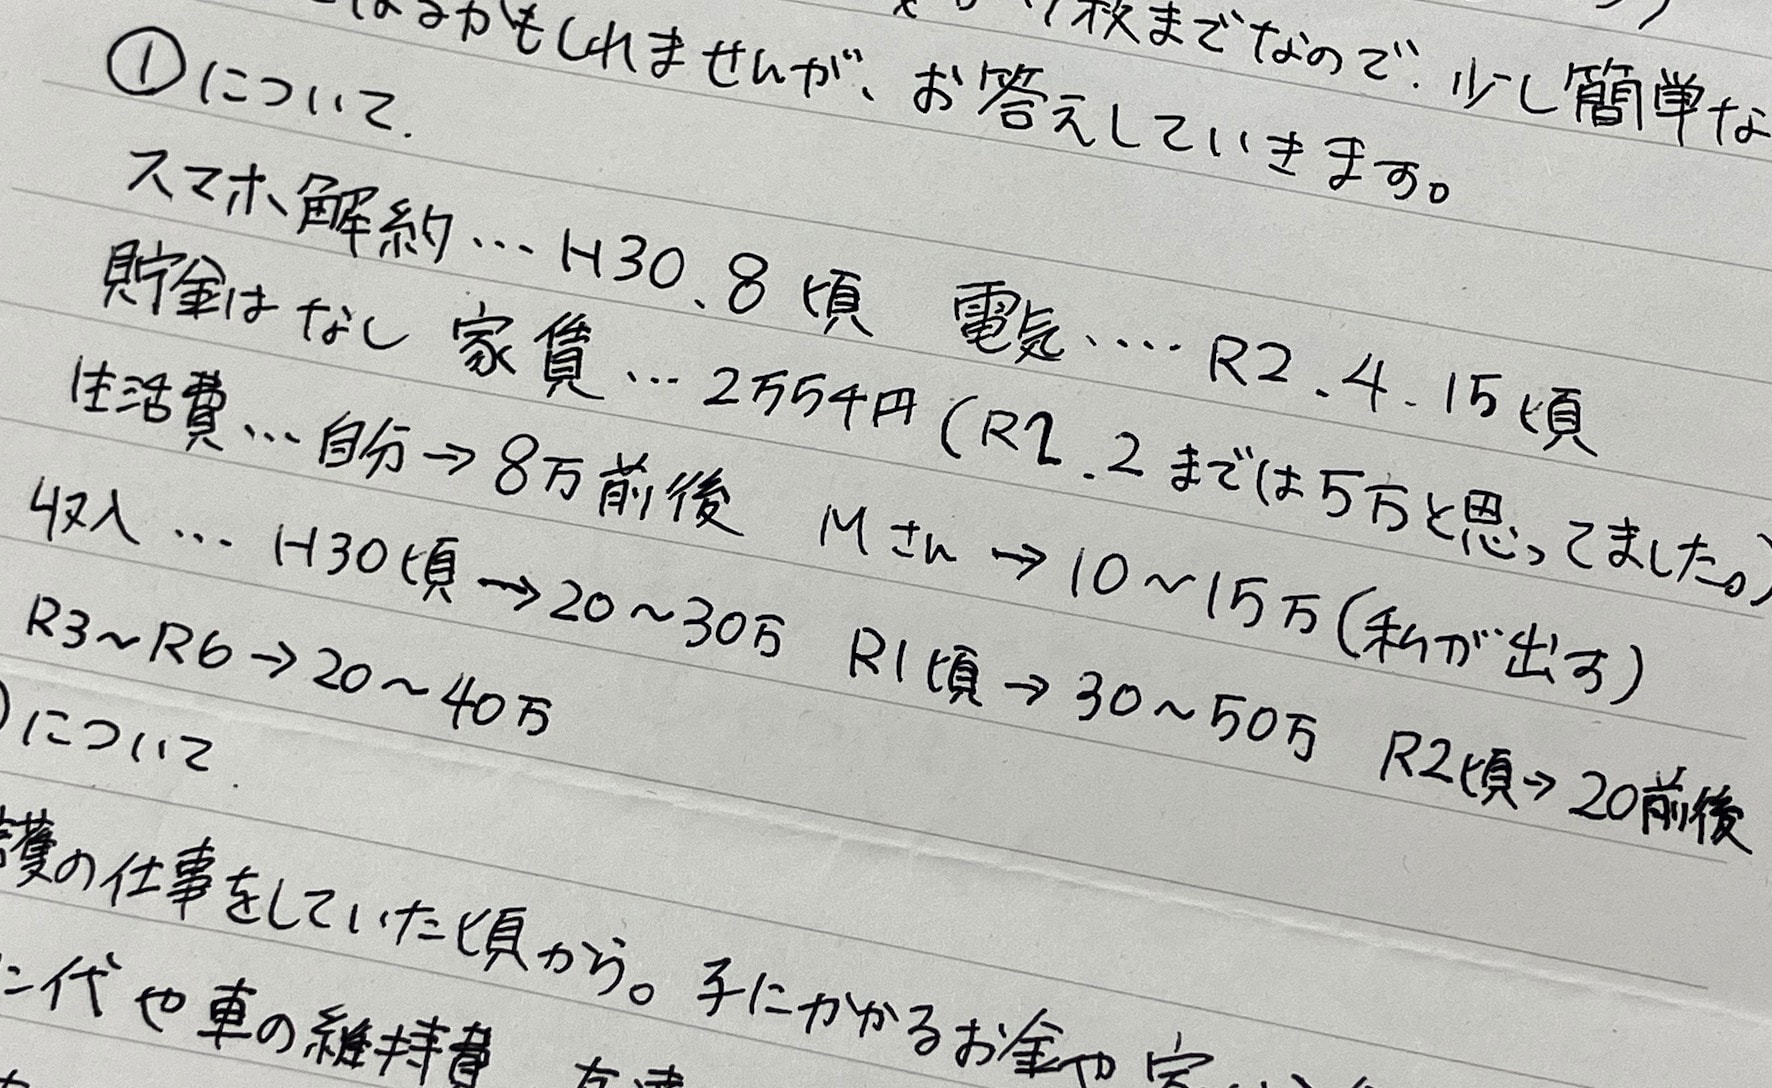 枚までなので、少し簡単な
なるかもしれませんが、お答えしていきます。
①について.
スマホ解約…H30.8頃 電気‥‥R2.4.15頃
貯金はなし 家賃…2万554円(R2.2までは5万と思ってました。)
生活費…自分→8万前後 Mさん→10〜15万(私が出す)
収入…H30頃→20〜30万 R1頃→30〜50万 R2頃→20前後
R3〜R6→20〜40万
について.
護の仕事をしていた頃から。子にかかるお金や
代や車の維持費